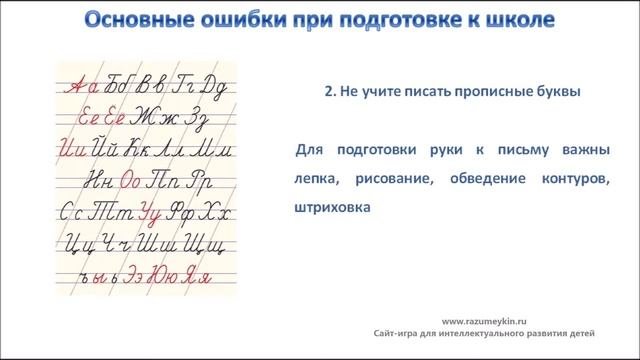 Основные ошибки при подготовке к школе
Аа Бб Вв Гг Дд
Ее Ее Жж Зз
Ии Йй Кк Лл Мм
Нн Оо Пп Рр
Сс Тт Уу Фф Хх
Цц Чч Шш Щщ
ъ ы ь Ээ Юю Яя
2. Не учите писать прописные буквы
Для подготовки руки к письму важны
лепка, рисование, обведение контуров,
штриховка
www.razumeykin.ru
Сайт-игра для интеллектуального развития детей